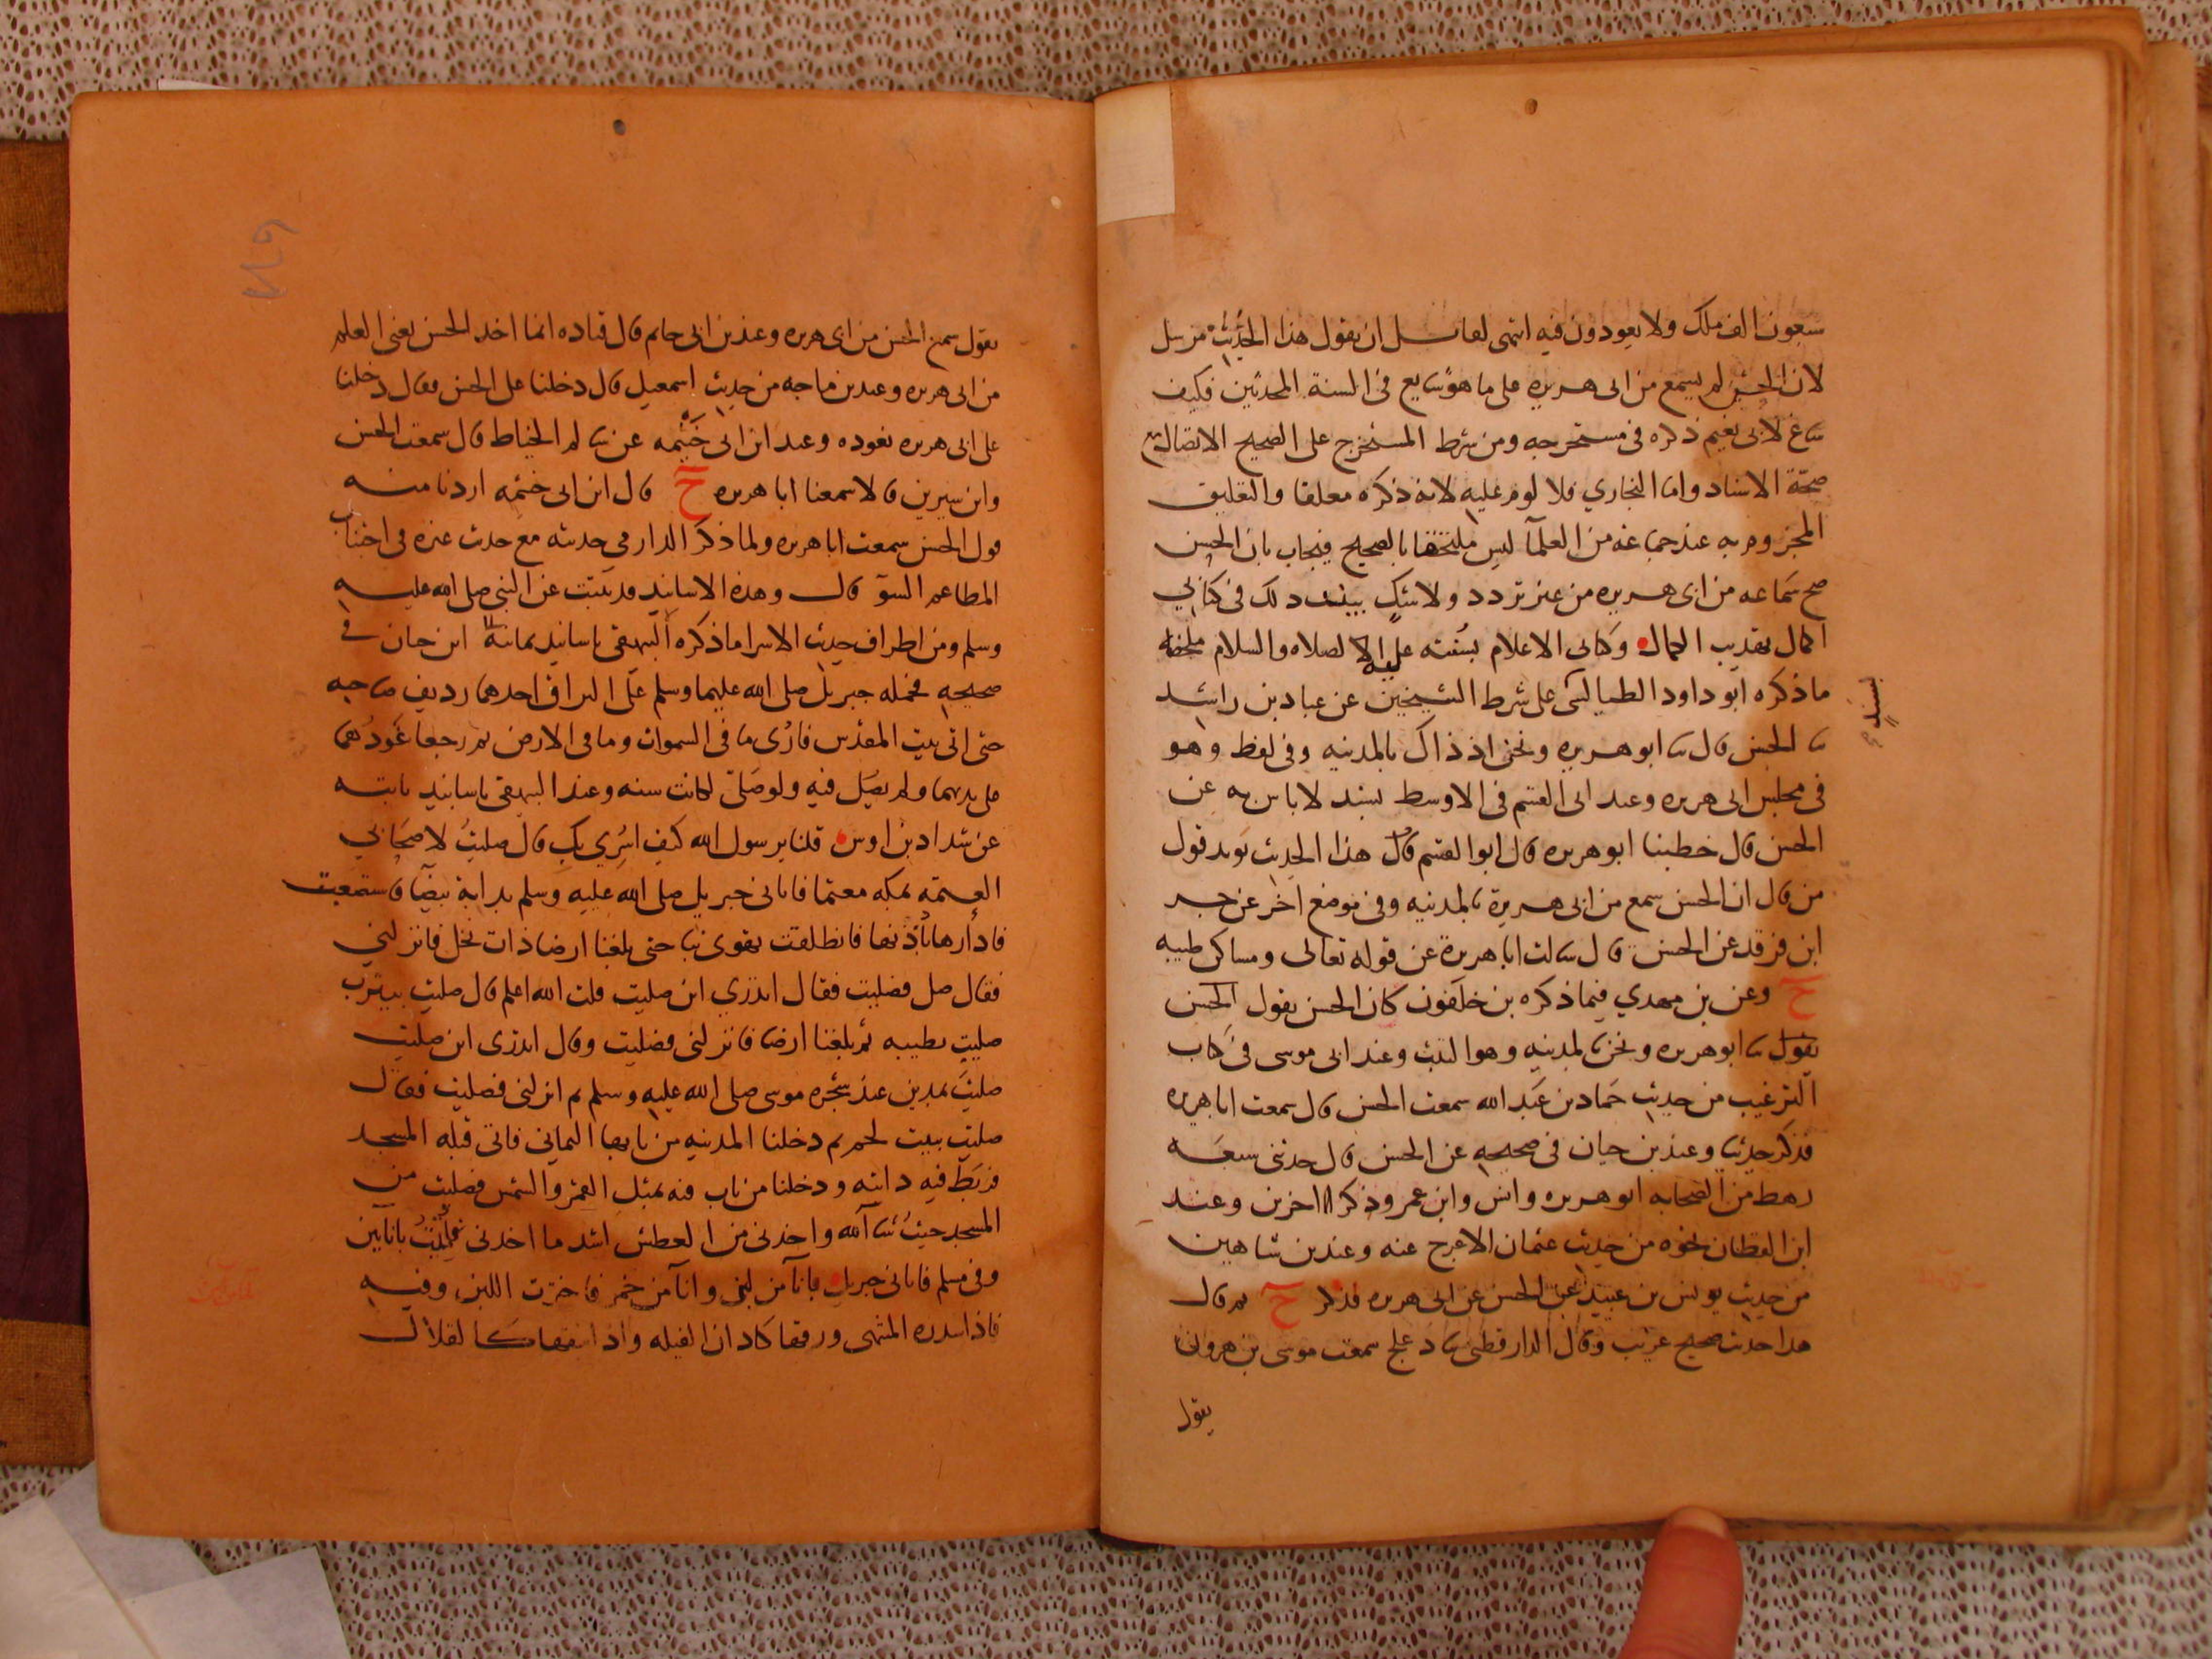 سبعون الف ملك ولا يعودون فيه انتهى لقائل ان يقول هذا الحديث مرسل
لان الحسن لم يسمع من ابى هريره على ما هو شايع فى السنة المحدثين فكيف
ساغ لابى نعيم ذكره فى مستخرجه ومن شرط المستخرج على الصحيح الاتصال مع
صحة الاسناد واما البخاري فلا لوم عليه لانه ذكره معلقا والتعليق
المجزوم به عند جماعه من العلمآ ليس ملتحقا بالصحيح فيجاب بان الحسن
صح سماعه من ابى هريره من غير تردد ولا شك بينت ذلك فى كتابي
اكمال تهذيب الكمال وكتابى الاعلام بسنته عليه الصلاه والسلام ملخصه
ما ذكره ابو داود الطيالسى على شرط الشيخين عن عباد بن راشد
بسند
ثنا الحسن قال ثنا ابو هريره ونحن اذ ذاك بالمدينه وفى لفظ وهو
فى مجلس ابى هريره وعند ابى القسم فى الاوسط بسند لا باس به عن
الحسن قال خطبنا ابو هريره قال ابو القسم قال هذا الحديث يويد قول
من قال ان الحسن سمع من ابى هريرة بالمدينه وفى موضع اخر عن جسر
ابن فرقد عن الحسن قال سالت ابا هريرة عن قوله تعالى ومساكن طيبه
ح وعن بن مهدي فيما ذكره بن خلفون كان الحسن يقول الحسن
يقول ثنا ابو هريره ونحن بالمدينه وهو الثبت وعند ابى موسى فى كتاب
الترغيب من حديث حماد بن عبد الله سمعت الحسن قال سمعت ابا هريره
فذكر حديثا وعند بن حبان فى صحيحه عن الحسن قال حدثنى سبعه
رهط من الصحابه ابو هريره وانس وابن عمر وذكر اخرين وعند
ابن القطان نحوه من حديث عثمان الاعرج عنه وعند بن شاهين
من حديث يونس بن عبيد عن الحسن عن ابى هريره فذكر ح ثم قال
هذا حديث صحيح غريب وقال الدارقطنى ثنا دعلج سمعت موسى بن هرون
يقول
يقول سمع الحسن من ابى هريره وعند بن ابى حاتم قال قتاده انما اخذ الحسن يعنى العلم
من ابى هريره وعند بن ماجه من حديث اسمعيل قال دخلنا على الحسن فقال دخلنا
على ابى هريره نعوده وعند ابن ابى خيثمه عن سالم الخياط قال سمعت الحسن
وابن سيرين قالا سمعنا ابا هريره ح قال ابن ابى خيثمه اردنا منه
قول الحسن سمعت ابا هريره ولما ذكر الدارمى حديثه مع حديث غيره فى اجتناب
المطاعم السوٓ قال وهذه الاسانيد قد ثبتت عن النبى صلى الله عليه
وسلم ومن اطراف حديث الاسرا ما ذكره البيهقى باسانيد ابن حبان فى
صحيحه فحمله جبريل صلى الله عليهما وسلم على البراق احدهما رديف صاحبه
حتى اتى بيت المقدس فارى ما فى السموات وما فى الارض ثم رجعا عودهما
على بدئهما ولم يصل فيه ولو صلى لكانت سنه وعند البيهقى باسانيد ثابته
عن شداد بن اوس قلنا يرسول الله كيف اسري بك قال صليت لاصحابي
العتمه بمكه معتما فاتانى جبريل صلى الله عليه وسلم بدابة بيضا فاستصعبت
فادارها باذنها فانطلقت تهوى بنا حتى بلغنا ارضا ذات نخل فانزلني
فقال صل فصليت فقال اتدري اين صليت قلت الله اعلم قال صليت بيثرب
صليت بطيبه ثم بلغنا ارضا فانزلنى فصليت وقال اتدرى اين صليت
صليت بمدين عند شجره موسى صلى الله عليه وسلم ثم انزلنى فصليت فقال
صليت ببيت لحم ثم دخلنا المدينه من بابها اليمانى فاتى قبله المسجد
فربط فيه دابته ودخلنا من باب فيه تميل القمر والشمس فصليت من
المسجد حيث شا الله واخذنى من العطش اشد ما اخذنى فاتيت باناءين
وفى مسلم فاتانى جبريل بانآ من لبن وانآ من خمر فاخترت اللبن وفيه
فاذا سدره المنتهى ورقها كاذان الفيله واذا نبقها كالقلال